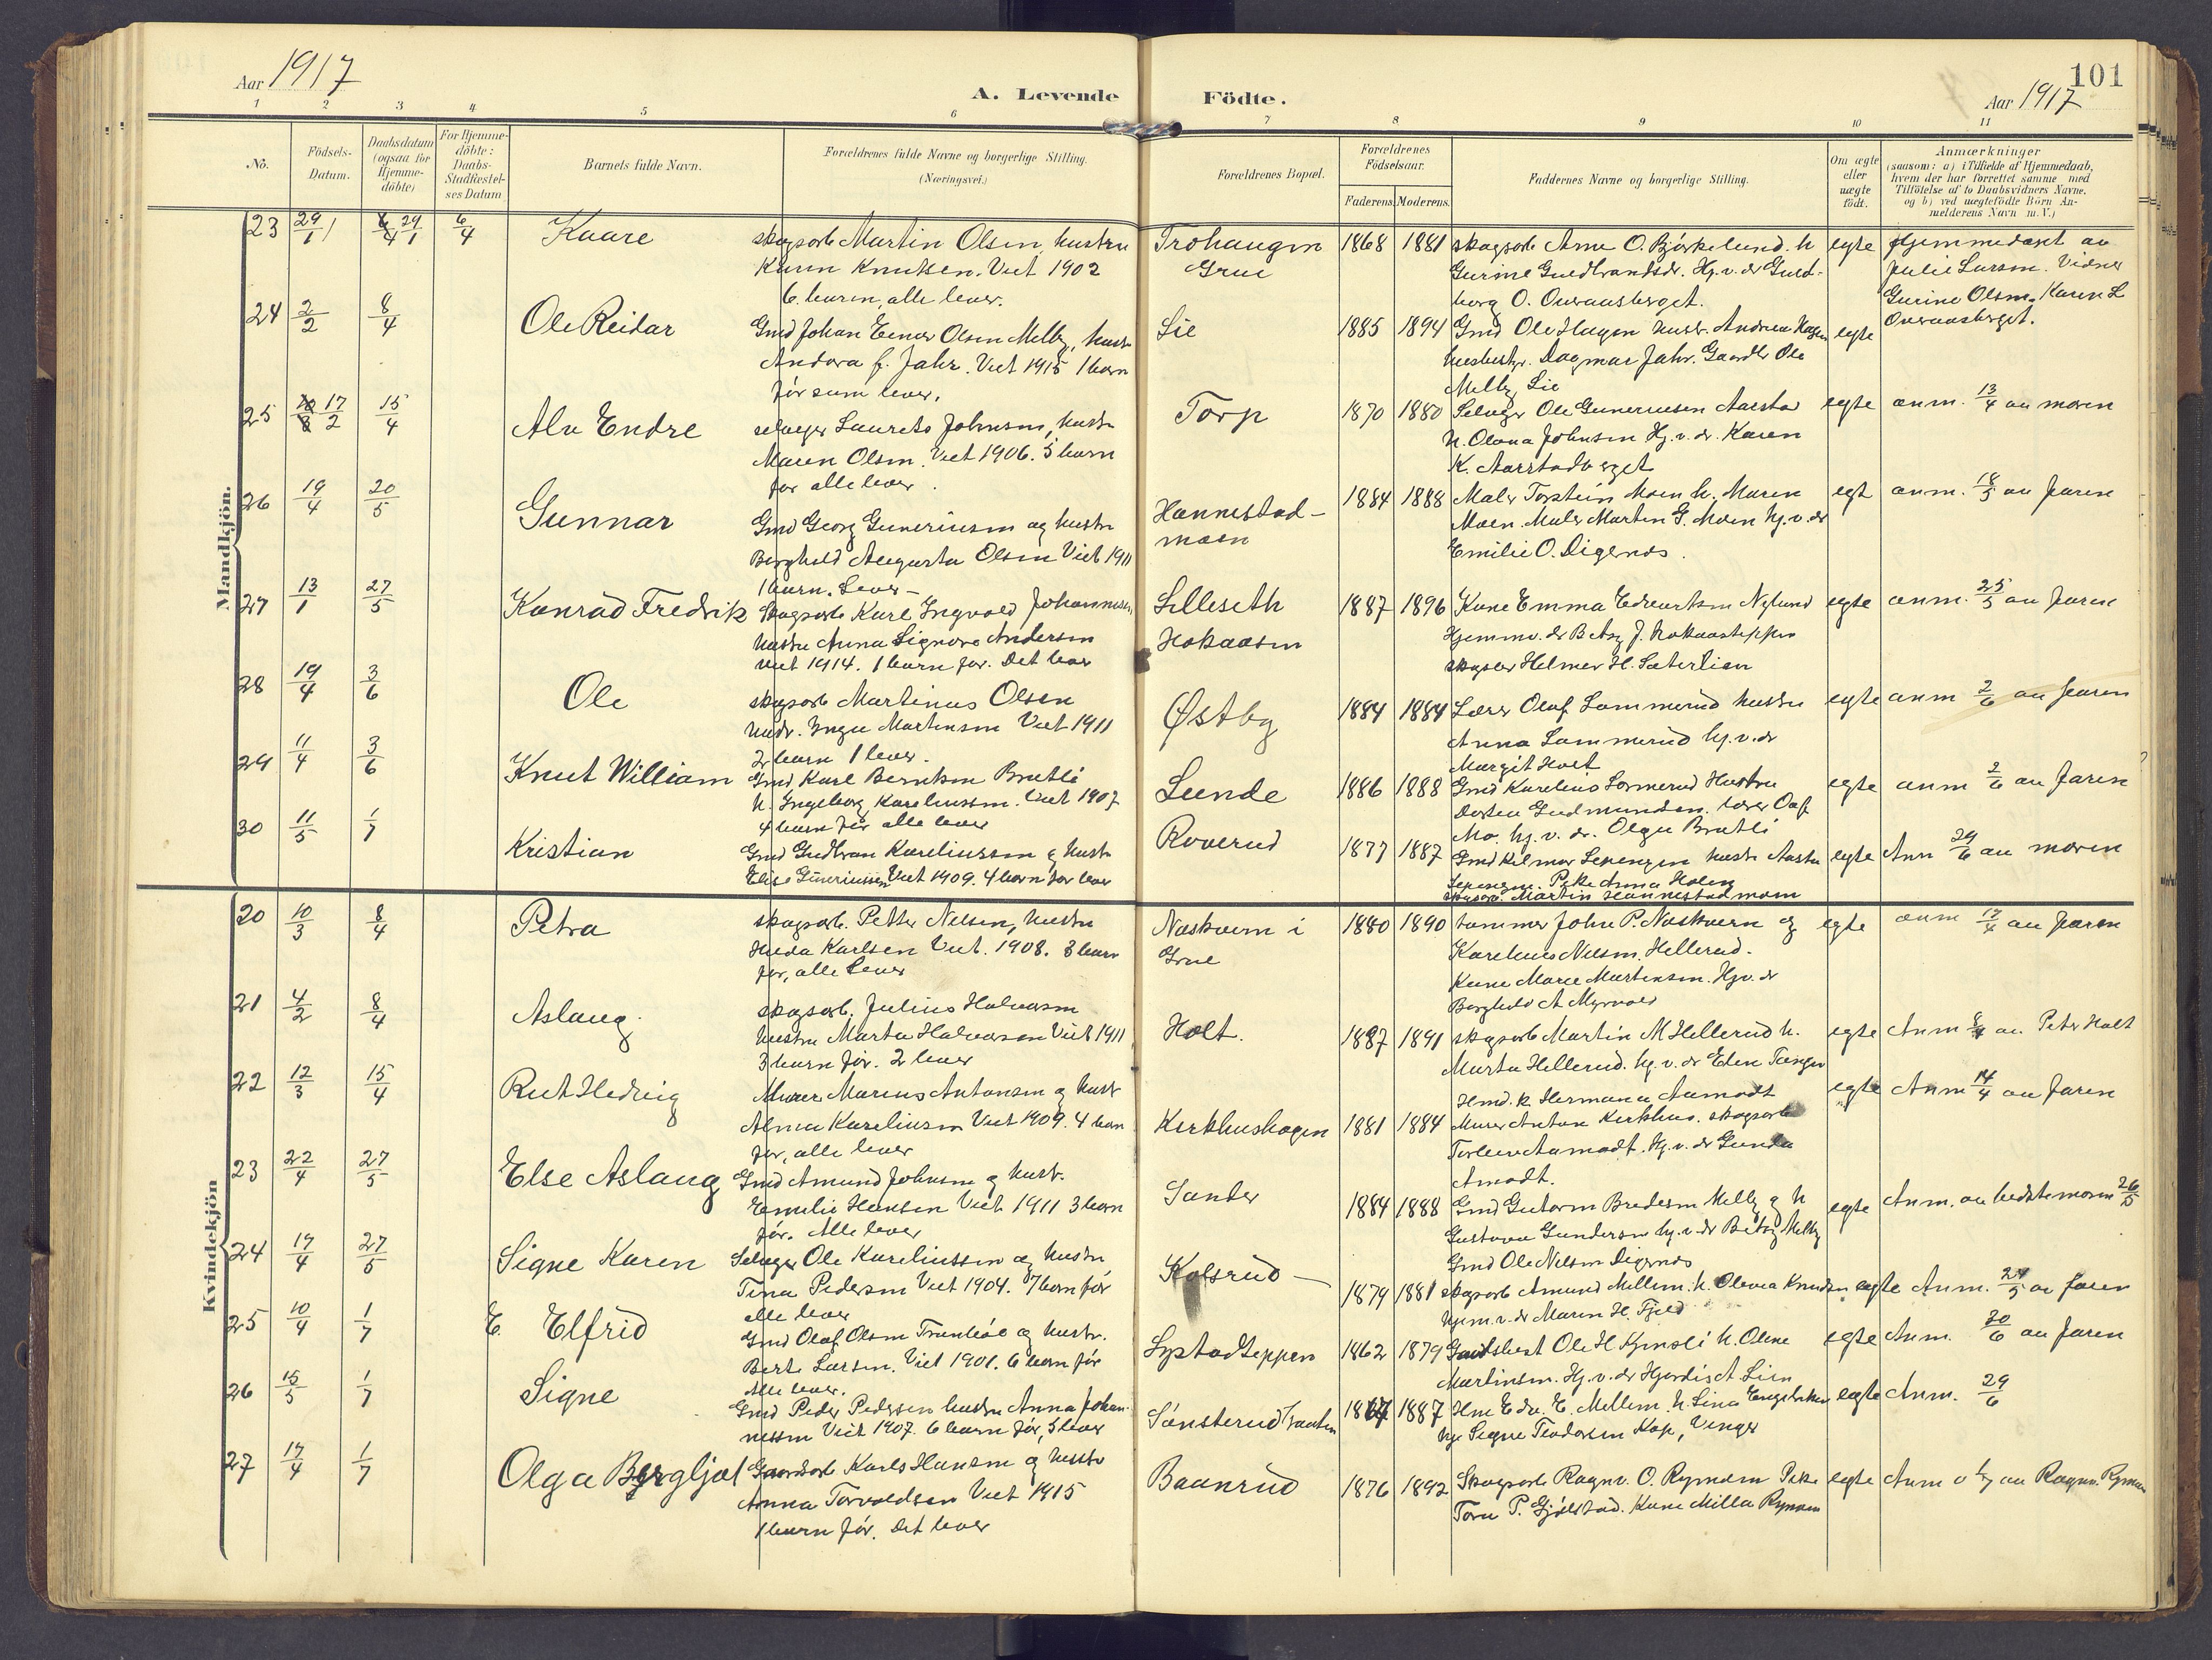 Aar 1917
A. Levende Födte.
101
Aar 1917
1 2 3 4 5 6 7 8 9 10 11
No.
Födsels-Datum.
Daabsdatum (ogsaa for Hjemme-döbte)
For Hjemme-döbte: Daabs-Stadfæstel-ses Datum
Barnets fulde Navn.
Forældrenes fulde Navne og borgerlige Stilling.
(Næringsvei.)
Forældrenes Bopæl.
Forældrenes Födselsaar.
Faderens. Moderens.
Faddernes Navne og borgerlige Stilling.
Om ægte eller uægte födt.
Anmærkninger
(saasom: a) i Tilfælde af Hjemmedaab,
hvem der har forrettet samme med
Tilföielse af to Daabsvidners Navne,
og b) ved uægtefödte Börn An-
melderens Navn m. V.)
Mandkjön.
23 29/1 29/1 6/4 Kaare
skogsarb Martin Olsen, hustru
Karen Knutsen. Viet 1902
6 barn, alle lever.
Grue
1868 1881
skogsarb Arne O. Björkelund. h
Gurine Guldbrandsdr. Hj. v. dr Guld-
borg O. Overaasberget.
egte
Hjemmedøpt av
Julie Larsen. Vidner
Gurine Olsen. Karen L
Overaasberget.
24 2/2 8/4 Ole Reidar
Gmd Johan Einar Olsen Melby, hustr
Andora f. Jahr. Viet 1915 1 barn
før som lever.
Lie
1885 1894
Gmd Ole Hagen hustr. Andrea Hagen
Dagmar Jahr. Gaardbr Ole
Melby Lie
egte
25 17/2 15/4 Alv Endre
selveger Laurits Johnsen, hustr
Maren Olsen. Viet 1906. 5 barn
før alle lever.
Torp
1870 1880
Selveger Ole Guneriusen Aarstad
h. Olava Johnsen Hj. v. dr. Karen
K. Aarstadberget
egte
anm. 13/4 av moren
26 19/4 20/5 Gunnar
Gmd Georg Guneriussen og hustru
Borghild Augusta Olsen Viet 1911
1 barn. Lever -
Hannestad-
moen
1884 1888
Maler Torstein Moen h. Maren
Moen. Maler Martin G. Moen hj. v. dr
Emilie O. Digernes.
egt
anm. 18/5 av faren
27 13/1 27/5 Konrad Fredrik
Skogsarb Karl Ingvald Johannessen
hustru Anna Signora Andersen
viet 1914. 1 barn før. Det lever
Lilleseth
Hokaasen
1887 1896
Kone Emma Edvartsen Nylund
Hjemmv. dr Betzy J. Hokaasteppen
skogsarb Helmer H. Sæterlien
egte
anm. 25/5 av faren
28 19/4 3/6 Ole
skogsarb Martinus Olsen
hustr. Inga Martinsen Viet 1911
2 barn 1 lever.
Østby
1884 1884
Lærer Olaf Sommerud hustru
Anna Sommerud hj. v. dr
Margit Holt
egte
anm 2/6 av faren
29 11/4 3/6 Knut William
Gmd Karl Berntsen Bratli
h. Ingeborg Kareliussen. Viet 1907
4 barn før alle lever
Lunde
1886 1888
Gmd Karelius Sormerud Hustru
Dorten Gudmundsen. lærer Olaf
Mo. hj. v. dr. Olga Bratli
egte
anm 2/6 av faren
30 11/5 1/7 Kristian
Gmd Gudbran Kareliussen og hustr
Elise Guneriussen Viet 1909. 4 barn før lever
Roverud
1877 1887
Gmd Hilmar Sepengen hustr Aasta
Sepengen. Pike Anna Holen
skogsarb. Martin Hannestadmoen
egte
Anm 29/6 av moren
Kvindekjön
20 10/3 8/4 Petra
skogsarb. Petter Nilsen, hustru
Hilda Karlsen Viet. 1908. 3 barn
før, alle lever
Naskværn i
Grue
1880 1890
tømmer John P. Naskværn og
Karelius Nilsen. Hellerud.
Kone Marie Martinsen. Hj v. dr
Borghild A Myrvold
egte
anm 17/4 av faren
21 4/2 8/4 Aslaug.
skogsarb. Julius Halvorsen
hustru Marta Halvorsen Viet 1911
3 barn før. 2 lever
Holt.
1887 1891
skogsarb Martin M Hellerud h.
Marta Hellerud. hj. v. dr Elen Tangen
egte
Anm 8/4 av Peter Holt
22 12/3 15/4 Rut Hedvig
Murer Marius Antonsen og hustr
Alma Kareliusen Viet 1909. 4 barn
før, alle lever
Kirkhushagen
1881 1884
Hmd. k Hermana Aamodt
Murer Anton Kirkhus. skogsarb
Torleiv Aamodt. Hj. v. dr Gunda
Amodt.
egte
Anm 14/4 av faren
23 22/4 27/5 Else Aslaug
Gmd Amund Johnsen og hust.
Emilie Hansen Viet 1911 3 barn
før. Alle lever
Sander
1884 1888
Gmd Gutorm Bredesen Melby og h
Gustava Gundersen hj. v. dr Betzy Melby
Gmd Ole Nilsen Digernes
egte
Anm. av bedstemoren 26/5
24 19/4 27/5 Signe Karen
Selveger Ole Kareliussen og hustru
Tina Pedersen Viet 1904. 7 barn før
alle lever
Kolsrud -
1879 1881
skogsarb Amund Mellem. h. Olevia Knudsen
hjem. v. dr Maren H. Fjeld
egte
Anm. 24/5 av faren
25 10/4 1/7 E. Elfrid
Gmd Olaf Olsen og hustr.
Berte Larsen. Viet 1901. 6 barn før
Alle lever.
Lystadteppen
1862 1879
Gaardsbest Ole H Kjensli h. Oline
Martinsen. Hj. v. dr Hjordis A Lien
egte
Anm. 30/6 av faren
26 15/5 1/7 Signe
Gmd Peder Pedersen hustru Anna Johan-
nessen Viet 1907. 6 barn før, 5 lever
Sønsterud
1887
Hme Edv. E. Mellem. h. Lina Engebrksen
hjv Signe Teodorsen Kop, Vinger
egte
Anm. 29/6
27 17/4 1/7 Olga Bergljot
Gaardsarb Karls Hansen og hustru
Anna Torvaldsen Viet 1915
1 barn før. Det lever
Baanrud
1876 1892
Skogsarb Ragnv. O. Rymoen Pike
Tora P. Gjølstad. Kone Milla Rymoen
egte
Anm 1/7 av Ragnv. Rymoen